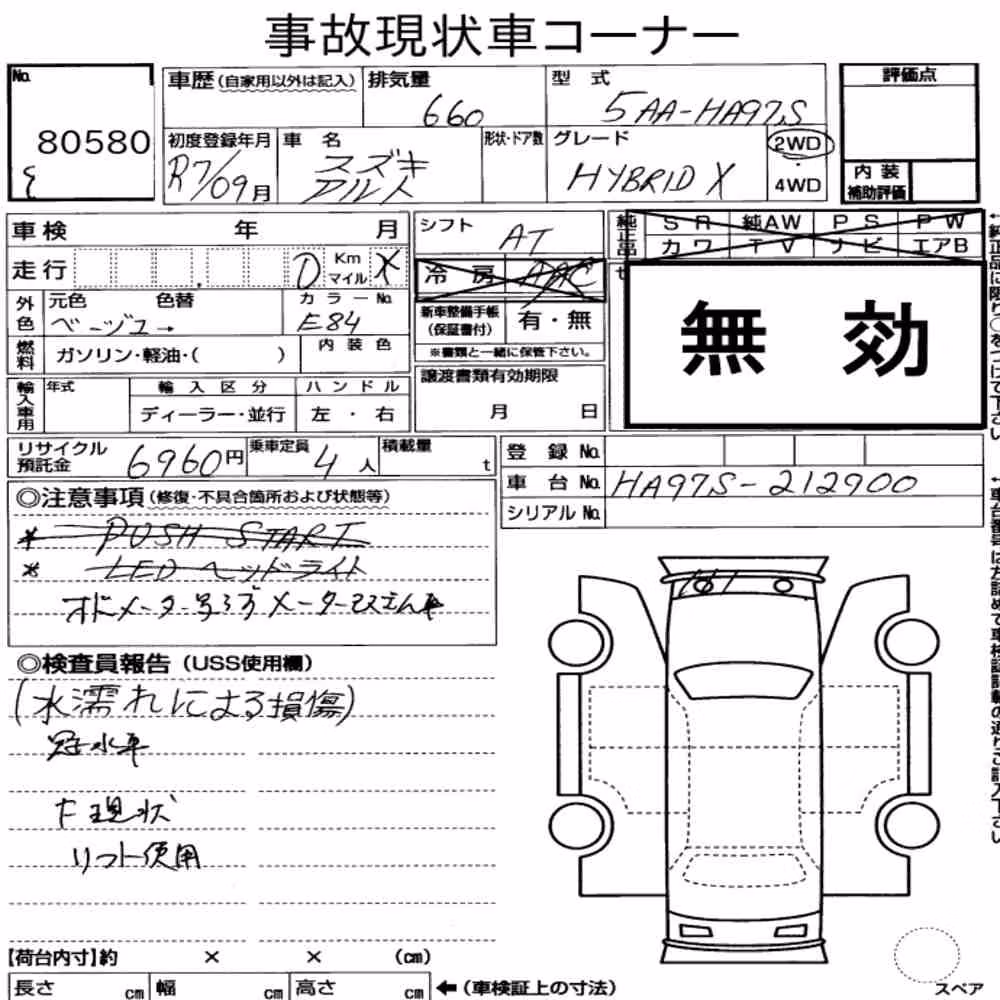 事故現状車コーナー
No. 80580
車歴(自家用以外は記入) 排気量 660 型式 5AA-HA97S
評価点
初度登録年月 R7/09月 車名 スズキ アルト 形状・ドア数 グレード HYBRID X 2WD 4WD
内装補助評価
車検 年 月
シフト AT
純正品 SR 純AW PS PW
カワ TV ナビ エアB
走行 0 Km マイル X
冷房 AAC
外色 元色 ベージュ 色替 → カラーNo. E84
新車整備手帳(保証書付) 有・無
※書類と一緒に保管下さい。
無効
燃料 ガソリン・軽油・( ) 内装色
輸入車用 年式 輸入区分 ハンドル
ディーラー・並行 左・右
譲渡書類有効期限
月 日
リサイクル預託金 6960円 乗車定員 4人 積載量 t
登録No.
車台No. HA97S-212900
シリアルNo.
◎注意事項(修復・不具合箇所および状態等)
* PUSH START
* LED ヘッドライト
◎検査員報告(USS使用欄)
(水濡れによる損傷)
冠水車
下現状
リフト使用
【荷台内寸】約 × × (cm)
長さ cm 幅 cm 高さ cm ←(車検証上の寸法)
スペア